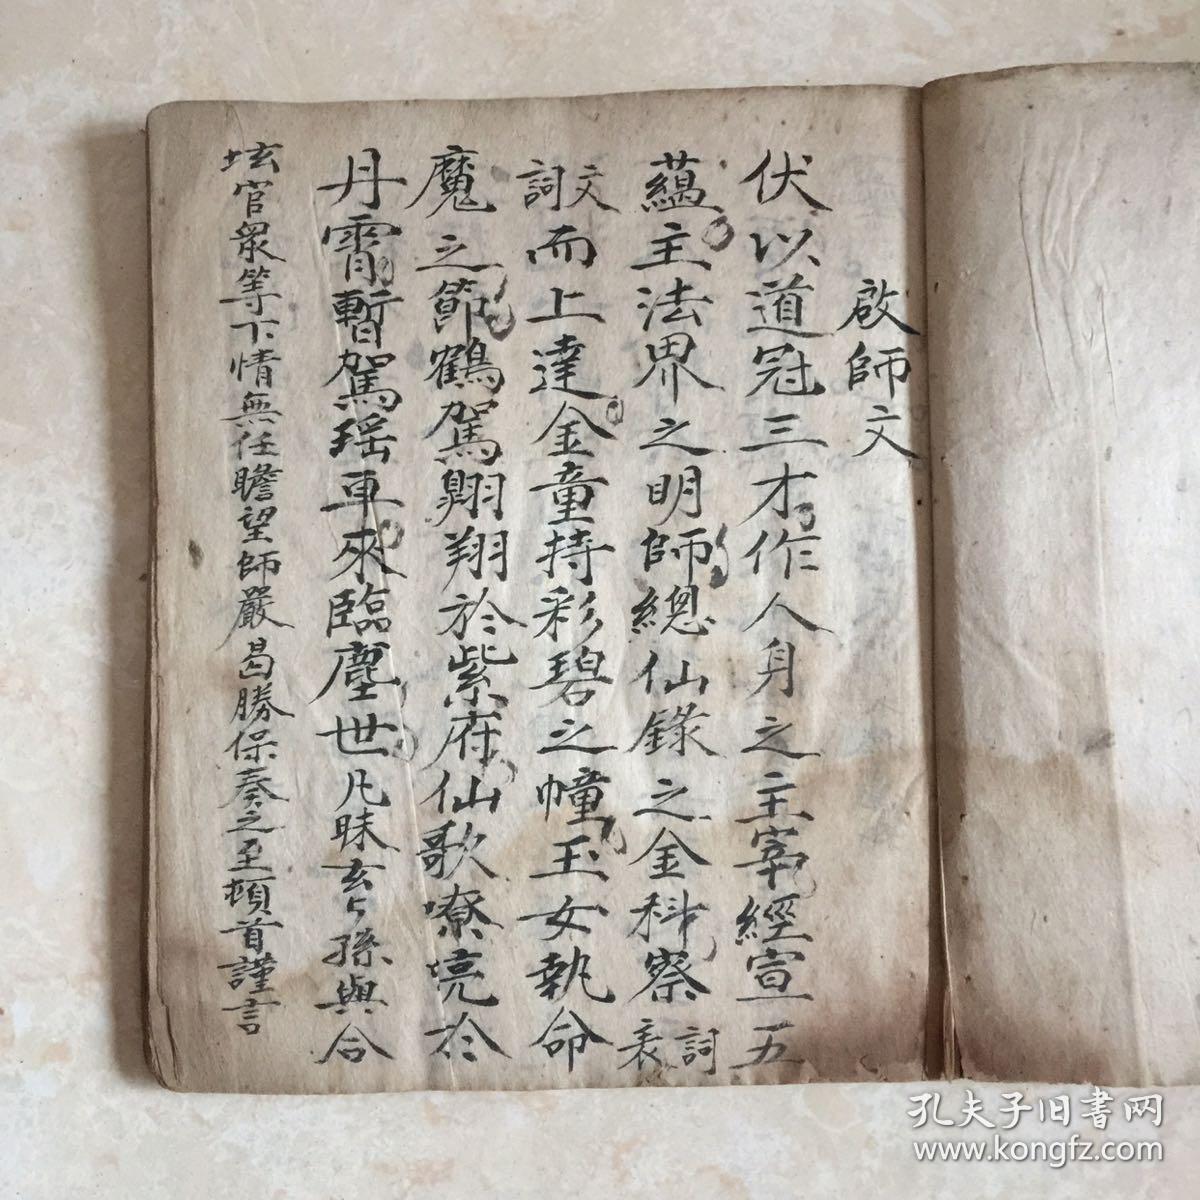 啟師文
伏以道冠三才作人身之主宰經宣五
蘊主法界之明師總仙錄之金科察詞表
文詞而上達金童持彩碧之幢玉女執命
魔之節鶴駕翺翔於紫府仙歌嘹喨於
丹霄暫駕瑤車來臨塵世凡昧玄々孫與合
坛官衆等下情無任瞻望師嚴曷勝保奏之至頓首謹言
孔夫子旧書网
www.kongfz.com